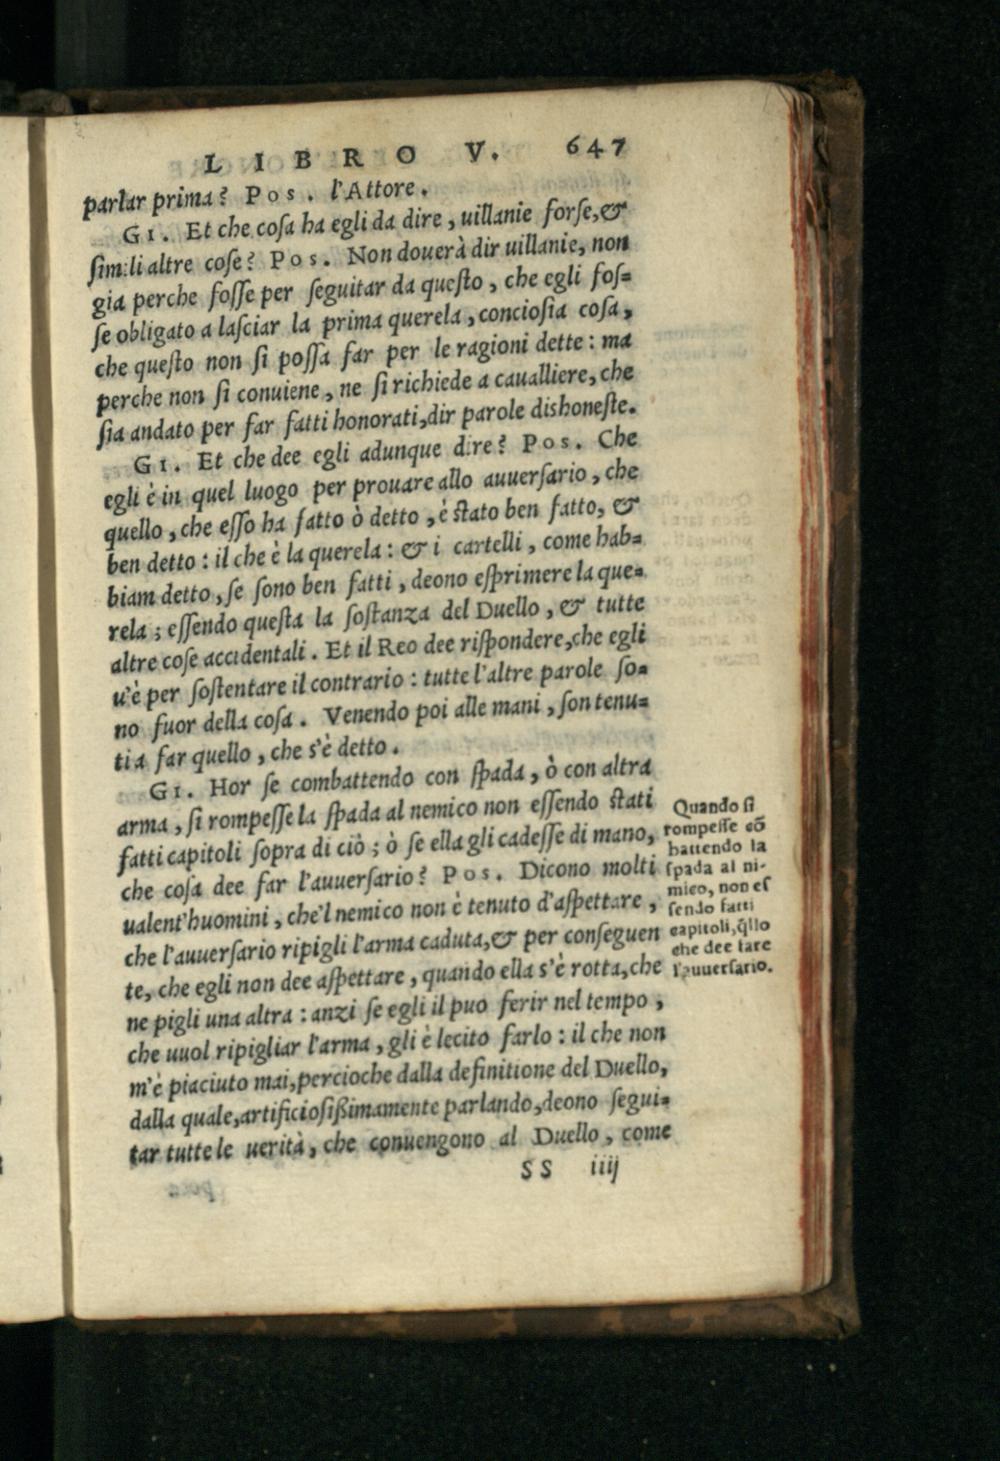 LIBRO V. 647
parlar prima? Pos. l'Attore.
GI. Et che coſa ha egli da dire, uillanie forſe, &
ſimili altre coſe? Pos. Non douerà dir uillanie, non
gia perche foſſe per ſeguitar da queſto, che egli foſ=
ſe obligato a laſciar la prima querela, concioſia coſa,
che queſto non ſi poſſa far per le ragioni dette: ma
perche non ſi conuiene, ne ſi richiede a caualliere, che
ſia andato per far fatti honorati, dir parole dishoneſte.
GI. Et che dee egli adunque dire? Pos. Che
egli è in quel luogo per prouare allo auuerſario, che
quello, che eſſo ha fatto ò detto, è ſtato ben fatto, &
ben detto: il che è la querela: & i cartelli, come hab=
biam detto, ſe ſono ben fatti, deono eſprimere la que=
rela; eſſendo queſta la ſoſtanza del Duello, & tutte
altre coſe accidentali. Et il Reo dee riſpondere, che egli
u'è per ſoſtentare il contrario: tutte l'altre parole ſo=
no fuor della coſa. Venendo poi alle mani, ſon tenu=
ti a far quello, che s'è detto.
GI. Hor ſe combattendo con ſpada, ò con altra
arma, ſi rompeſſe la ſpada al nemico non eſſendo ſtati
fatti capitoli ſopra di ciò; ò ſe ella gli cadeſſe di mano,
che coſa dee far l'auuerſario? Pos. Dicono molti
ualent'huomini, che'l nemico non è tenuto d'aſpettare,
che l'auuerſario ripigli l'arma caduta, & per conſeguen
te, che egli non dee aſpettare, quando ella s'è rotta, che
ne pigli una altra: anzi ſe egli il puo ferir nel tempo,
che uuol ripigliar l'arma, gli è lecito farlo: il che non
m'è piaciuto mai, percioche dalla definitione del Duello,
dalla quale, artificioſißimamente parlando, deono ſegui=
tar tutte le uerità, che conuengono al Duello, come
SS iiij
Quando ſi
rompeſſe cõ
battendo la
ſpada al ni-
mico, non eſ
ſendo fatti
capitoli, q̃llo
che dee fare
l'auuerſario.